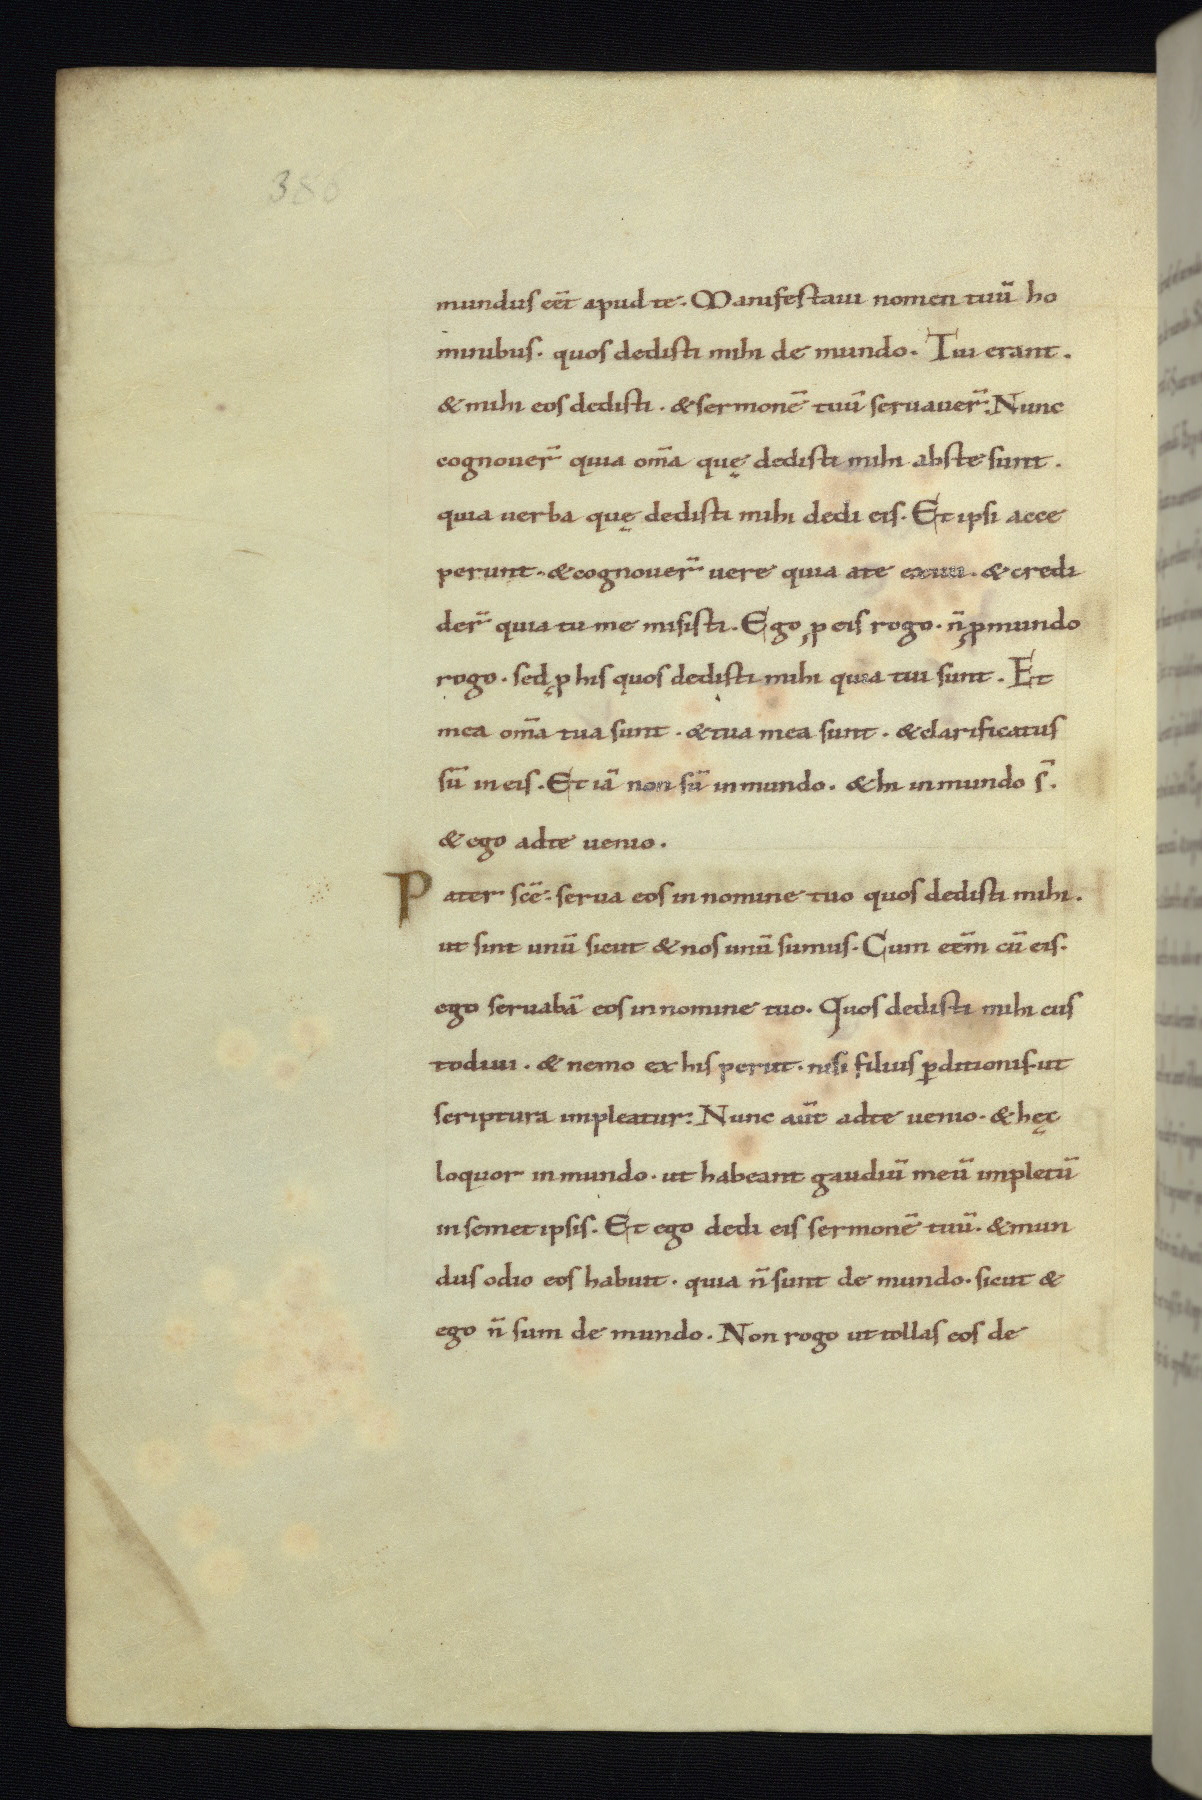 386
mundus eēt apud te. Manifestaui nomen tuū ho
minibus. quos dedisti mihi de mundo. Tui erant.
& mihi eos dedisti. & sermonē tuū seruauer̄. Nunc
cognouer̄ quia om̄a quę dedisti mihi abs te sunt.
quia uerba quę dedisti mihi dedi eis. Et ipsi acce
perunt. & cognouer̄ uere quia a te exiui. & credi
der̄ quia tu me misisti. Ego ꝓ eis rogo. n̄ ꝓ mundo
rogo. sed ꝓ his quos dedisti mihi quia tui sunt. Et
mea om̄a tua sunt. & tua mea sunt. & clarificatus
sū in eis. Et iā non sū in mundo. & hi in mundo s̄.
& ego ad te uenio.
Pater scē. serua eos in nomine tuo quos dedisti mihi.
ut sint unū sicut & nos unū sumus. Cum eēm cū eis.
ego seruabā eos in nomine tuo. Quos dedisti mihi cus
todiui. & nemo ex his periit. nisi filius ꝑditionis. ut
scriptura impleatur. Nunc aūt ad te uenio. & hęc
loquor in mundo. ut habeant gaudiū meū impletū
in semet ipsis. Et ego dedi eis sermonē tuū. & mun
dus odio eos habuit. quia n̄ sunt de mundo. sicut &
ego n̄ sum de mundo. Non rogo ut tollas eos de